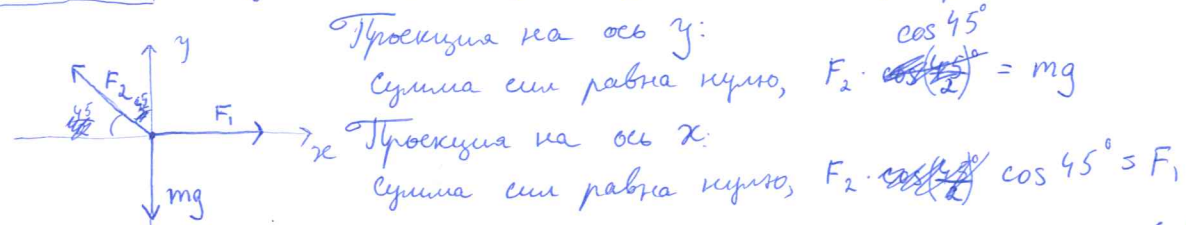 y
F₂
45
45
F₁
x
mg
Проекция на ось y:
cos 45°
Сумма сил равна нулю, F₂ · = mg
Проекция на ось x:
Сумма сил равна нулю, F₂ · cos 45° = F₁